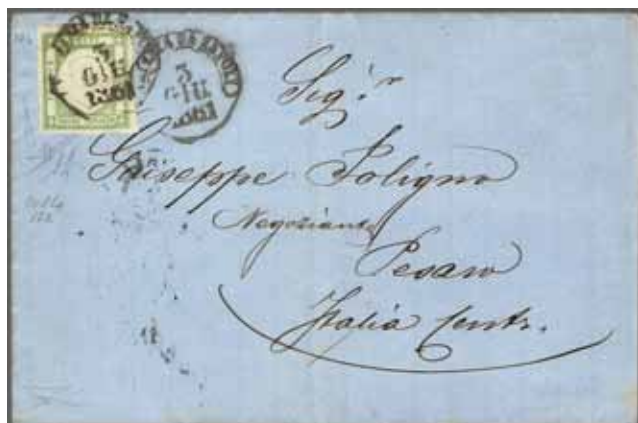 3
GIU
1861
3
GIU
1861
Sig.r
Giuseppe Foligno
Negoziante
Pesaro
Italia Centr.